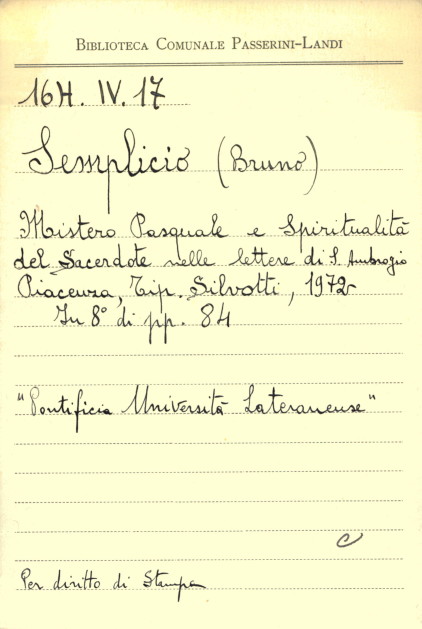 BIBLIOTECA COMUNALE PASSERINI-LANDI
16H. IV. 17
Semplicio (Bruno)
Mistero Pasquale e Spiritualità
del Sacerdote nelle lettere di S. Ambrogio
Piacenza, Tip. Silvotti, 1972
In 8° di pp. 84
"Pontificia Università Lateranense"
C
Per diritto di Stampa